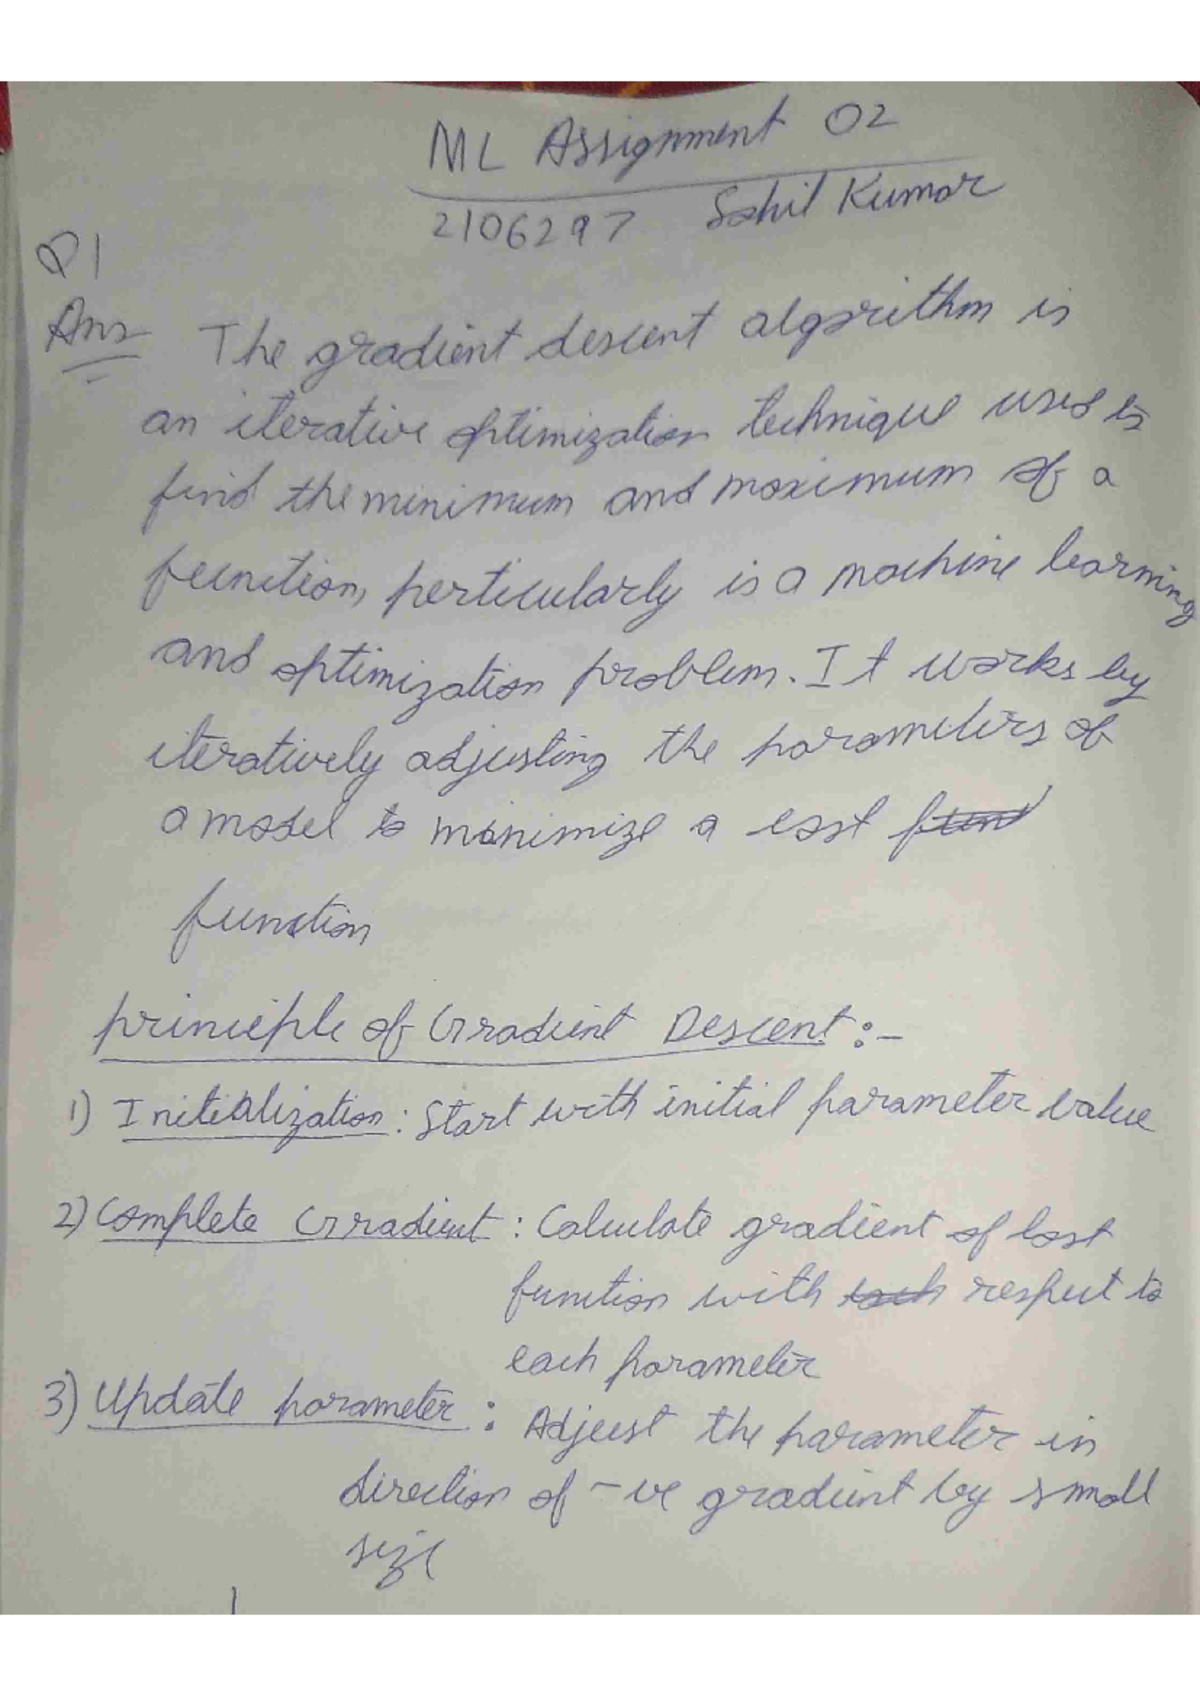 ML Assignment 02
2106297 Sahil Kumar
Q1
Ans The gradient descent algorithm is
an iterative optimization technique used to
find the minimum and maximum of a
function, perticularly is a machine learning
and optimization problem. It works by
iteratively adjusting the parameters of
a model to minimize a cost
function
principle of Gradient Descent :-
1) Initialization : Start with initial parameter value
2) Complete Gradient : Calculate gradient of cost
function with respect to
each parameter
3) Update parameter : Adjust the parameter in
direction of -ve gradient by small
size